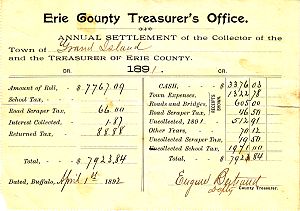 Erie County Treasurer's Office.
ANNUAL SETTLEMENT of the Collector of the
Town of Grand Island
and the TREASURER OF ERIE COUNTY.
DR. CR.
1891
Amount of Roll, - $ 7767.09
School Tax, -
Road Scraper Tax, 66.00
Interest Collected, 1.87
Returned Tax, 88.88
Total, - - $ 7923.84
CASH, - - $ 3376.03
Town Expenses, 1322.78
Roads and Bridges, 605.00
Road Scraper Tax 46.50
Uncollected, 1891 512.91
Other Years, 70.12
Uncollected Road Scraper Tax, 19.50
Uncollected School Tax, 1971.00
Total, - - $ 7923.84
RECEIPTS SHOWN.
Dated, Buffalo, April 1st 1892
Eugene Bertrand
Deputy County Treasurer.